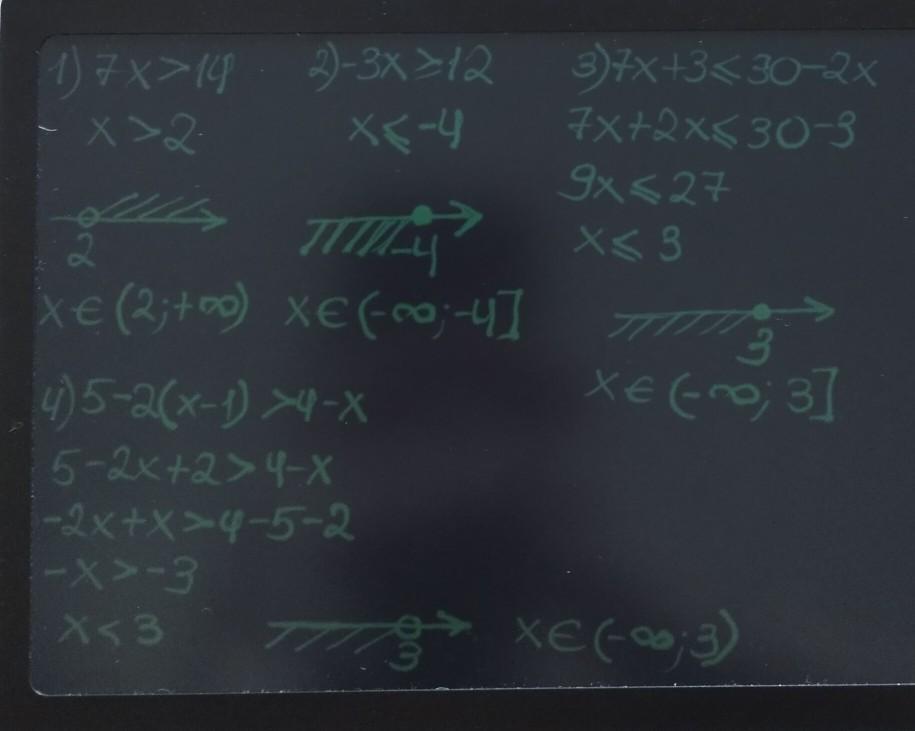 1) 7x>14
x>2
2
x∈(2;+∞)
2) -3x≥12
x≤-4
-4
x∈(-∞;-4]
3) 7x+3≤30-2x
7x+2x≤30-3
9x≤27
x≤3
3
x∈(-∞;3]
4) 5-2(x-1)>4-x
5-2x+2>4-x
-2x+x>4-5-2
-x>-3
x<3
3
x∈(-∞;3)